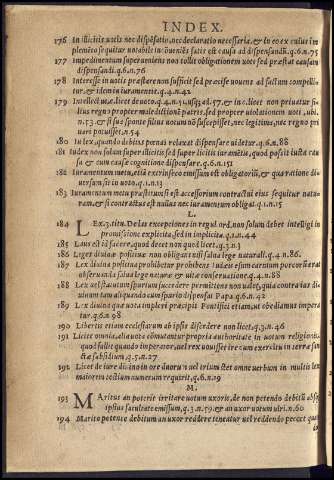 INDEX.
176 In illicitis votis nec dispẽsatio, nec declaratio necessaria, & in eo ex cuius im
plemẽto sequitur notabile incõueniẽs satis est causa ad dispensandũ. q.6.n.75
177 impedimentum superueniens non tollit obligationem voti sed præstat causam
dispensandi. q.6.n.76
178 Interesse in votis præstare non sufficit sed præcise vouens ad factum compelli-
tur, & idem in iuramentis. q.4.n.42
179
regno propter male dictionẽ patris, sed propter violationem voti,
n.53 & si sua sponte filius votum nõ suscepisset, nec legitimus, nec regno pri
uari potuisset. n.54
180 In lex, quando debitas pœnas relaxat dispensare videtur. q.6.n.88
181 Iudex non solum super illicitis sed super licitis iuramẽtis, quod possit iusta cau
sa & cum causæ cognitione dispensare. q.6.n.151
182 Iuramentum metu, etiã extrinseco emissum est obligatoriũ, & qua ratione di
uersum sit in voto. q.1.n.13
183 Iuramentum metu præstitum si est accessorium contractui eius sequitur natu-
ram, & si contractus est nullus nec iuramentum obligat. q.1.n.15
L.
184 LEx.3.titu. De las excepciones in regul ord. non solum debet intelligi in
promissione explicita, sed in implicita. q.1.n.44
185 Laus est id facere, quod decet non quod licet. q.3.n.3
186 Leges diuinæ positiuæ non obligant nisi salua lege naturali. q.4.n.86.
187 Lex diuina positiua prohibitur prohibens
obseruari salua lege naturæ & vitæ conseruatione. q.4.n.88
188 Lex vel statutum spurium succedere permittens non valet, quia contra ius di
uinum tam aliquando cum spurio dispensat Papa. q.6.n.42
189 Lex diuina quæ vota impleri præcipit Pontifici etiam, vt obediamus impera
tur. q.6.n.98
190 Libertas etiam ecclesiarum ab ipsis discedere non licet. q.3.n.46
191 Licet omnia, alia vota comutantur propria authoritate in votum religionis,
quod fallit quando imperator, vel rex vouisset ire cum exercitu in terræ san
ctæ subsidium. q.5.n.27
192 Licet de iure diuino in ore duorum vel trium stet omne verbum in multis lex
maiorem testium numerum requirit. q.6.n.19
M.
193 MAritus an poterit irritare votum vxoris, de non petendo debitũ absq;
ipsius facultate emissum, q.3.n.59. & an vxor votum viri. n.60
194 Marito petente debitum an vxor reddere teneatur vel reddendo peccet qua